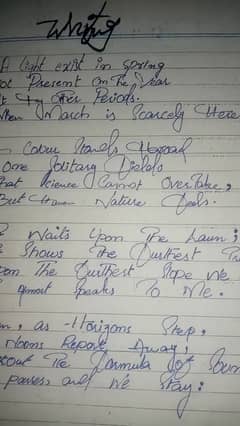 Writing
A Light exist in spring
ot Present on The Year
t any other Periods.
hen March is Scarcely Here
Colour Stands Abroad
One Solitary Fields
hat Science Cannot Overtake,
But Human Nature feels.
Waits Upon The Lawn;
Shows The Furthest
on The Furthest Slope we
almost Speaks To Me.
n, as Horizons Step,
noons Report Away;
out The Formula of Soun
passes, and we Stay: